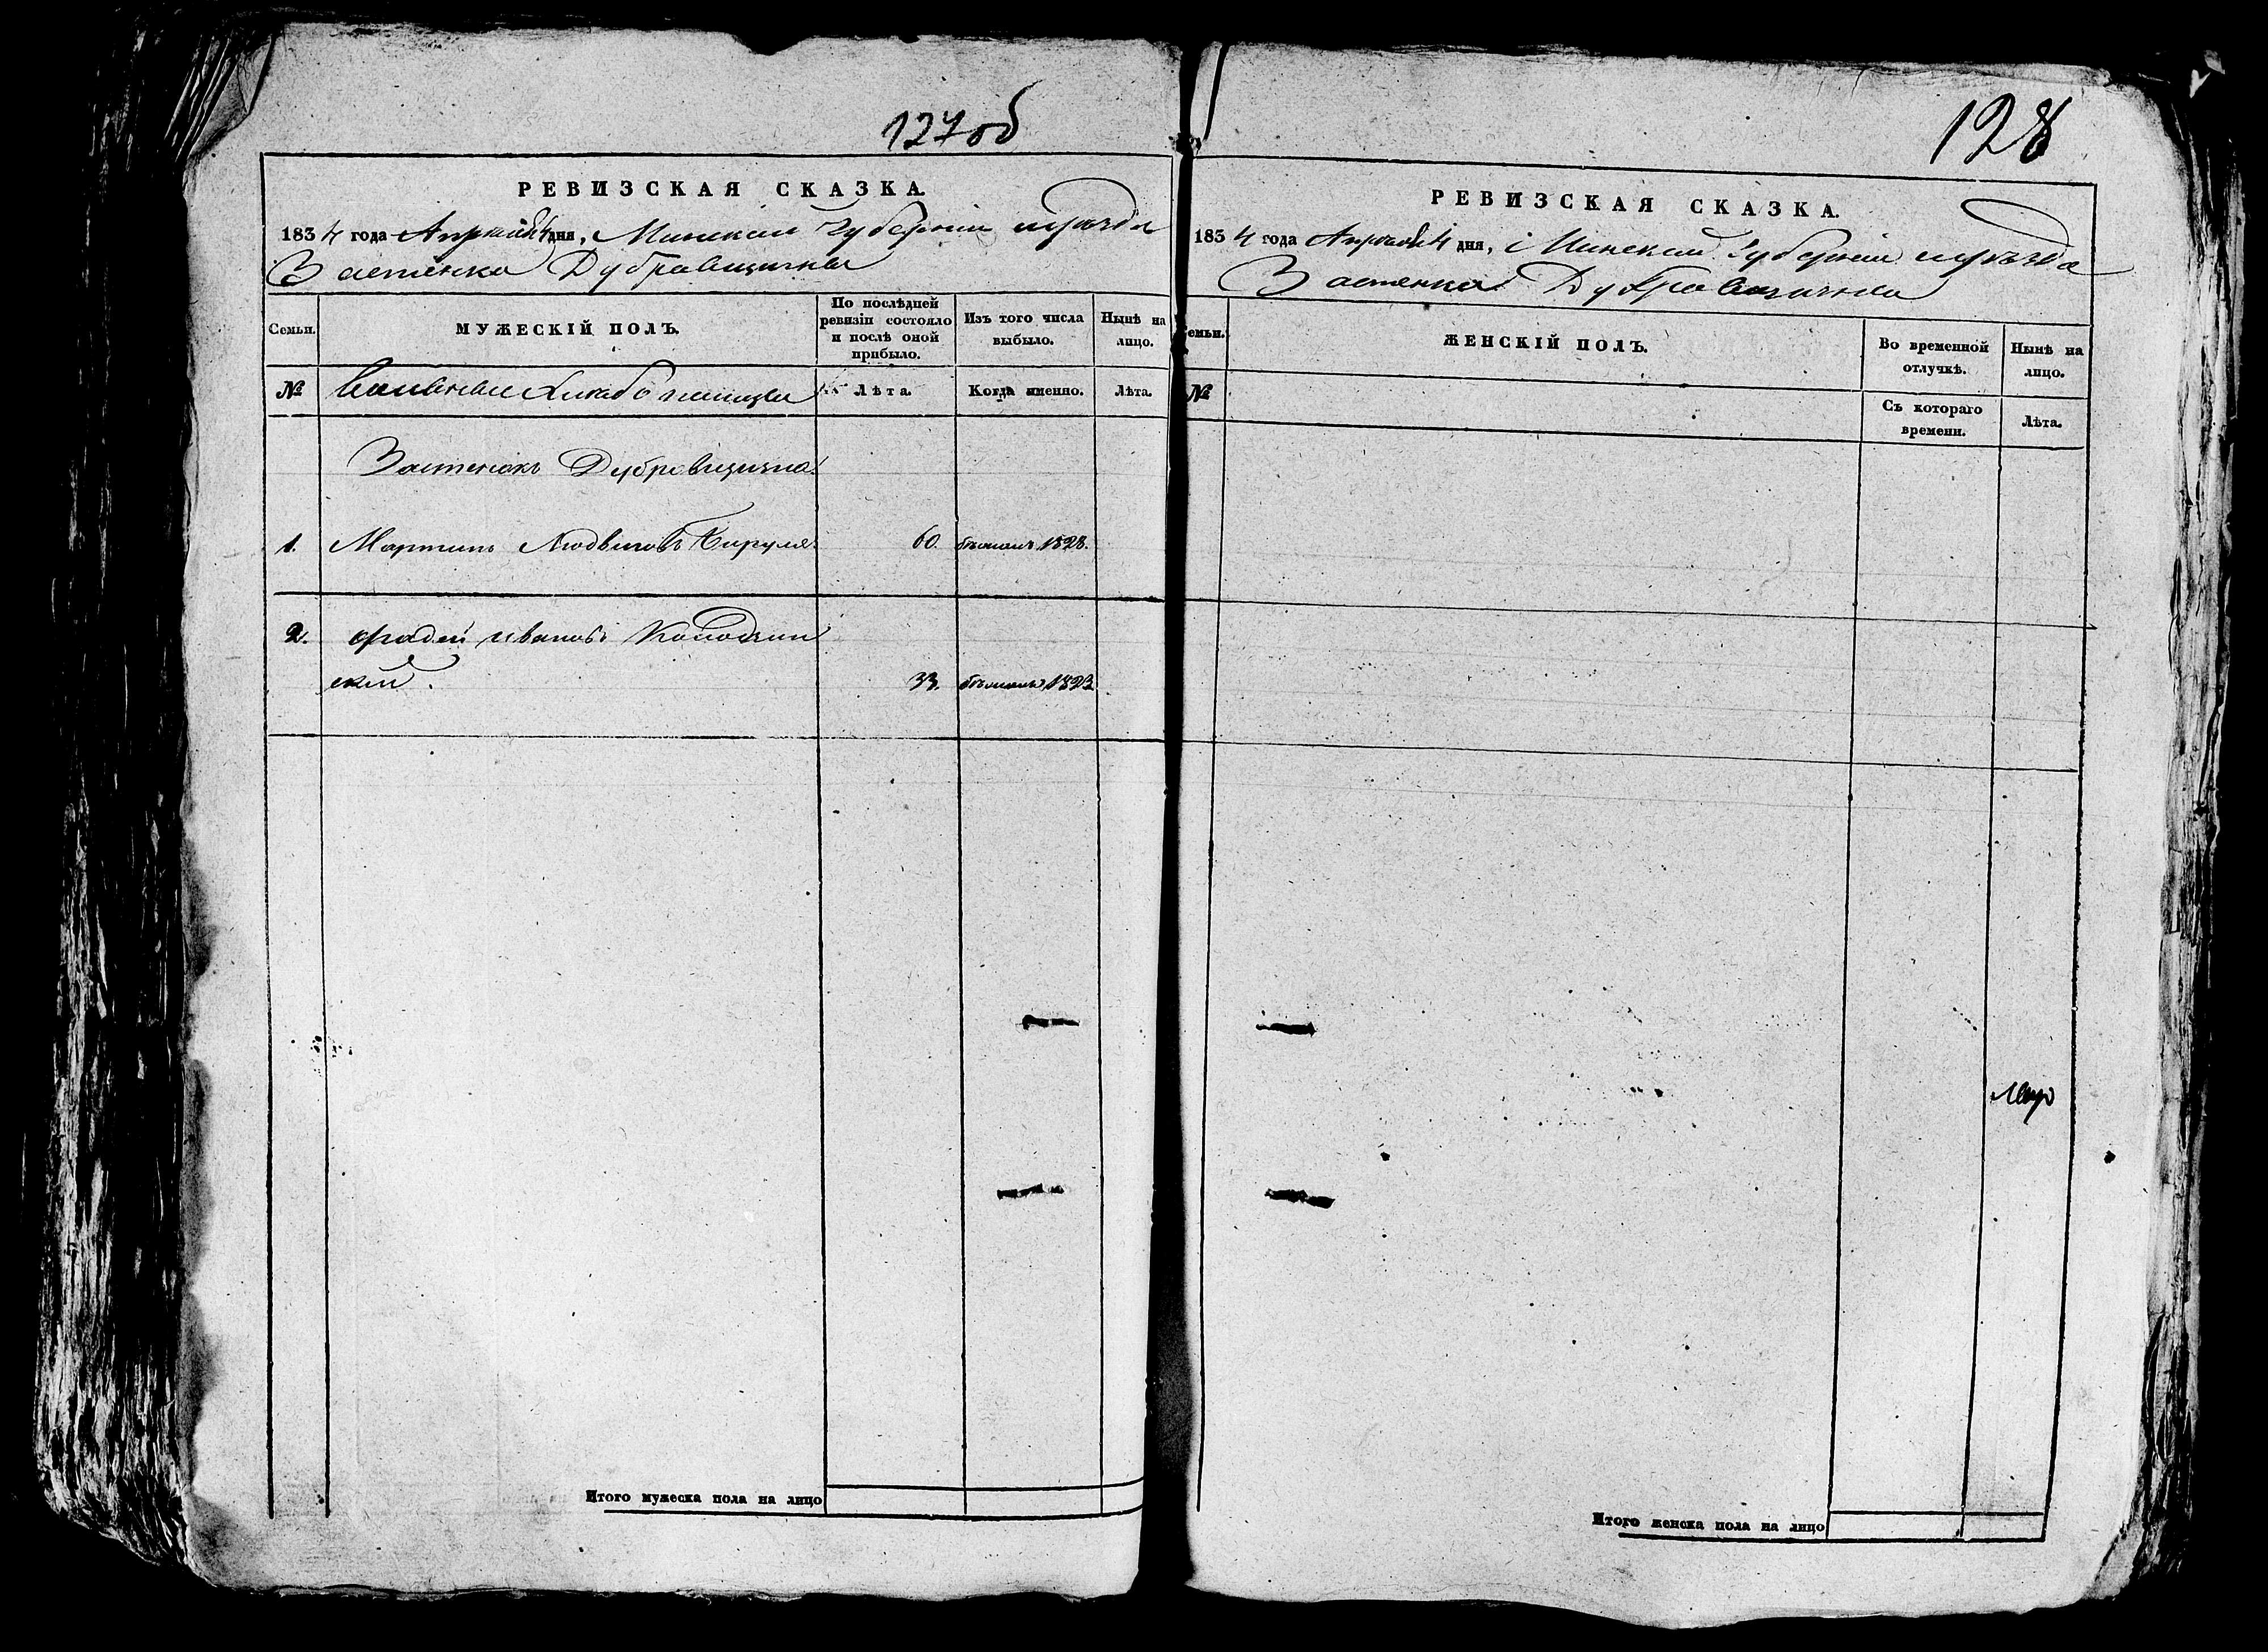 127об
РЕВИЗСКАЯ СКАЗКА.
1834 года Апреля 4 дня, Минской Губерніи и уѣзда
Застенка Дубравщизны
Семьи.
МУЖЕСКІЙ ПОЛЪ.
По послѣдней ревизіи состояло и послѣ оной прибыло.
Изъ того числа выбыло.
Нынѣ на лицо.
№
Лѣта.
Когда именно.
Лѣта.
Застенокъ Дубровщизна
1. Мартинъ Людвиговъ Бируля 60. 1828.
2. Фадей Ивановъ Колодзин
ский. 33. 1823
Итого мужеска пола на лицо
128
РЕВИЗСКАЯ СКАЗКА.
1834 года Апреля 4 дня, Минской Губерніи и уѣзда
Застенка Дубравщизны
Семьи.
ЖЕНСКІЙ ПОЛЪ.
Во временной отлучкѣ.
Нынѣ на лицо.
№
Съ котораго времени.
Лѣта.
Итого женска пола на лицо